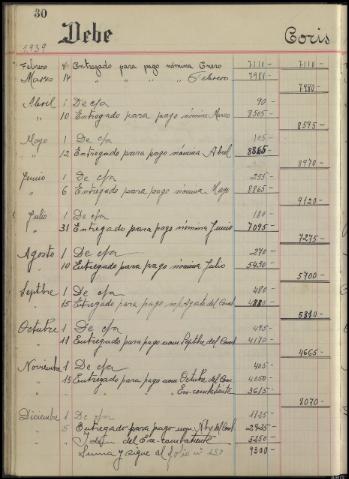 30
Debe Coris
1939
Febrero 8 Entregado para pago nómina Enero 7110- 7110-
Marzo 14 " " " " Febrero 7980-
7980-
Abril 1 De c/a 90-
" 10 Entregado para pago nómina Marzo 8505-
8595-
Mayo 1 De c/a 105-
" 12 Entregado para pago nómina Abril 8865-
8970-
Junio 1 De c/a 255-
" 6 Entregado para pago nómina Mayo 8865-
9120-
Julio 1 De c/a 180-
" 31 Entregado para pago nómina Junio 7095-
7275-
Agosto 1 De c/a 270-
" 10 Entregado para pago nómina Julio 5430-
5700-
Septbre 1 De c/a 480-
" 15 Entregado para pago Agosto del Cund
5810-
Octubre 1 De c/a 495-
" 11 Entregado para pago nom Septbre del Cund 4170-
4665-
Noviembre 1 De c/a 405-
" 15 Entregado para pago nom Octubre del Cun 4050-
" " Ex-combatiente 3615-
8070-
Diciembre 1 De c/a
" 5 Entregado para pago nom Nbre del Cund
" " Idest. del Exe-combatiente 5250
Suma y sigue al folio nº 9300-